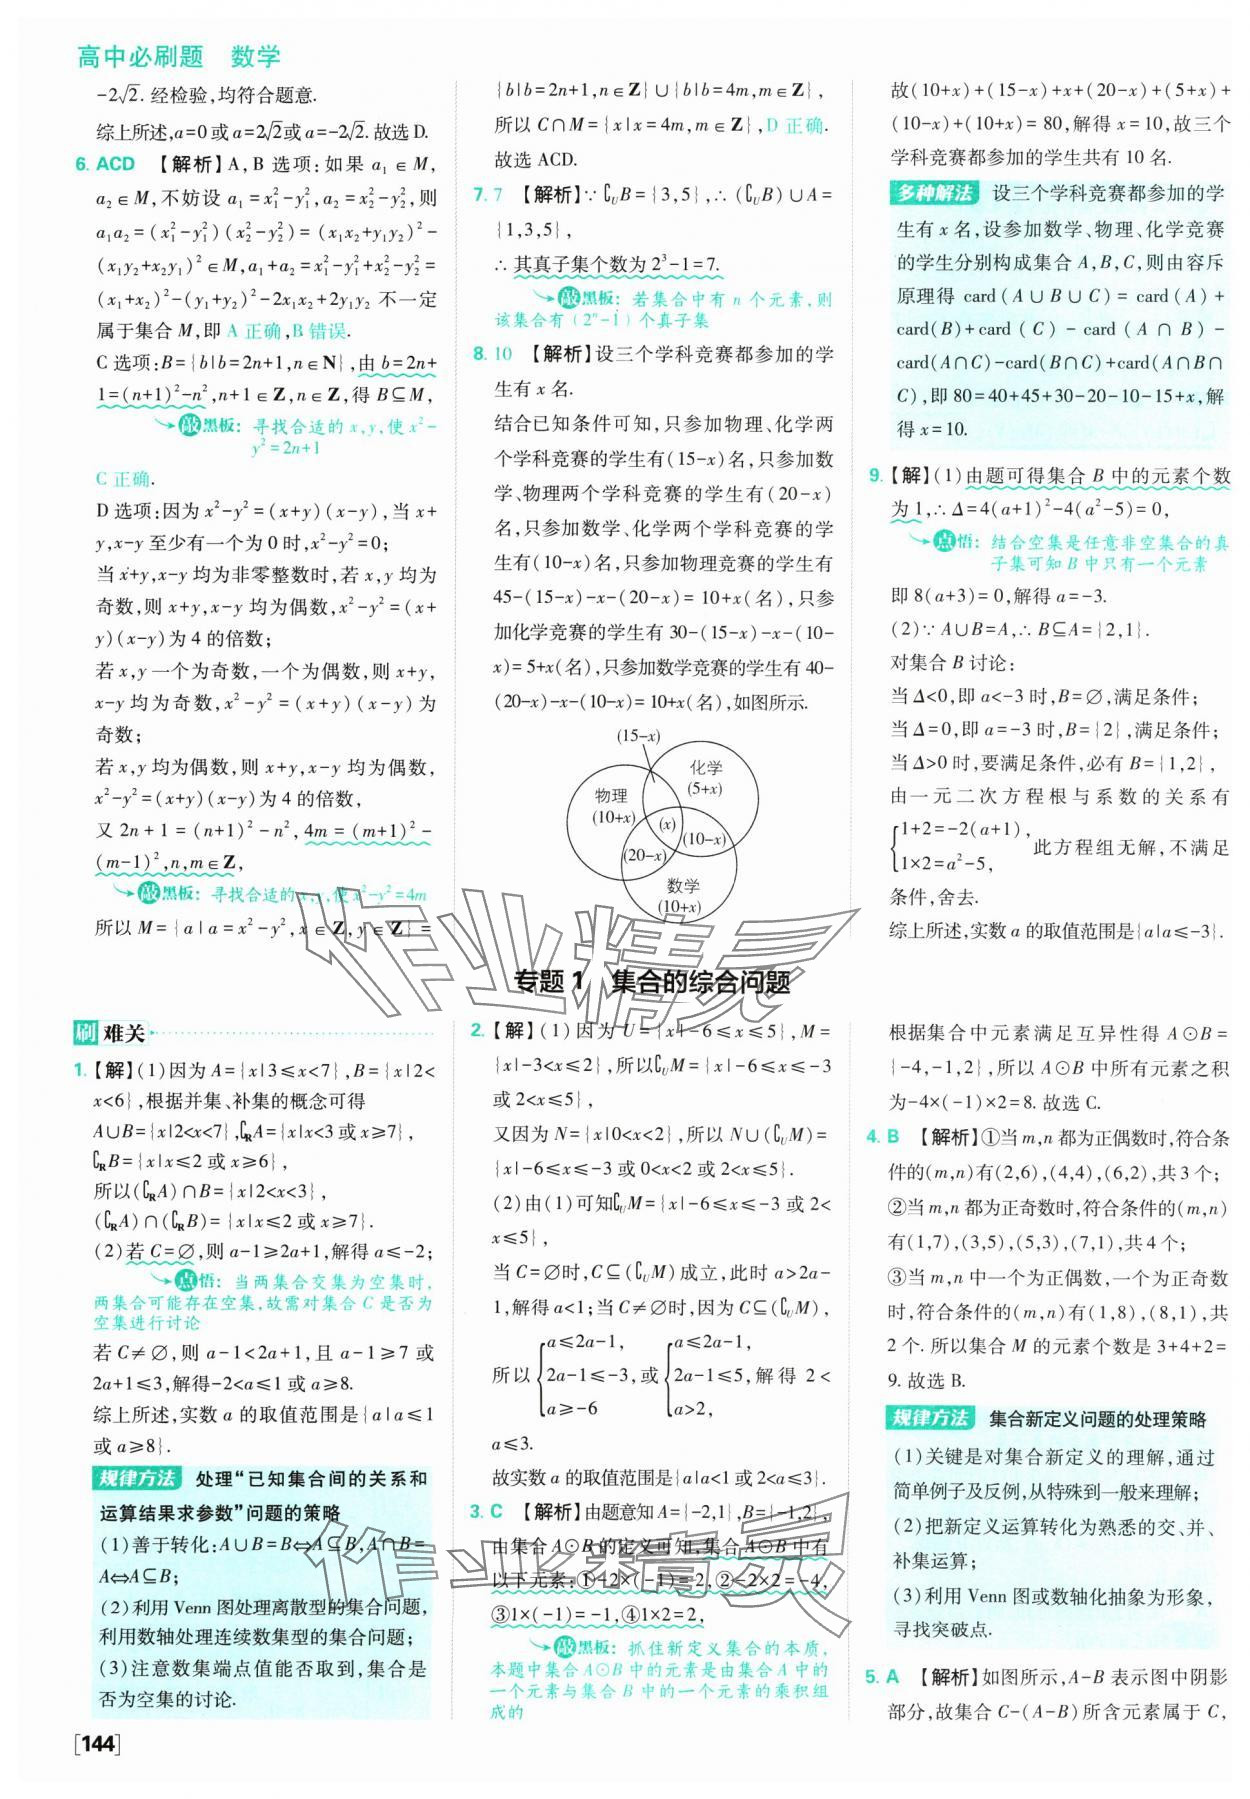 高中必刷题 数学
-2√2. 经检验,均符合题意.
综上所述,a=0或a=2√2或a=-2√2. 故选 D.
6. ACD 【解析】A,B 选项:如果 a₁∈M,
a₂∈M,不妨设 a₁=x₁²-y₁²,a₂=x₂²-y₂²,则
a₁a₂=(x₁²-y₁²)(x₂²-y₂²)=(x₁x₂+y₁y₂)²-
(x₁y₂+x₂y₁)²∈M,a₁+a₂=x₁²-y₁²+x₂²-y₂²=
(x₁+x₂)²-(y₁+y₂)²-2x₁x₂+2y₁y₂ 不一定
属于集合 M,即 A 正确,B 错误.
C 选项:B={b|b=2n+1,n∈N},由 b=2n+
1=(n+1)²-n²,n+1∈Z,n∈Z,得 B⊆M,
敲黑板:寻找合适的 x,y,使 x²-
y²=2n+1
C 正确.
D 选项:因为 x²-y²=(x+y)(x-y),当 x+
y,x-y 至少有一个为 0 时,x²-y²=0;
当 x+y,x-y 均为非零整数时,若 x,y 均为
奇数,则 x+y,x-y 均为偶数,x²-y²=(x+
y)(x-y)为 4 的倍数;
若 x,y 一个为奇数,一个为偶数,则 x+y,
x-y 均为奇数,x²-y²=(x+y)(x-y)为
奇数;
若 x,y 均为偶数,则 x+y,x-y 均为偶数,
x²-y²=(x+y)(x-y)为 4 的倍数,
又 2n+1=(n+1)²-n²,4m=(m+1)²-
(m-1)²,n,m∈Z,
敲黑板:寻找合适的 x,y,使 x²-y²=4m
所以 M={a|a=x²-y²,x∈Z,y∈Z}=
{b|b=2n+1,n∈Z}∪{b|b=4m,m∈Z},
所以 C∩M={x|x=4m,m∈Z},D 正确.
故选 ACD.
7. 7 【解析】∵∁UB={3,5},∴(∁UB)∪A=
{1,3,5},
∴其真子集个数为 2³-1=7.
敲黑板:若集合中有 n 个元素,则
该集合有(2ⁿ-1)个真子集
8. 10 【解析】设三个学科竞赛都参加的学
生有 x 名.
结合已知条件可知,只参加物理、化学两
个学科竞赛的学生有(15-x)名,只参加数
学、物理两个学科竞赛的学生有(20-x)
名,只参加数学、化学两个学科竞赛的学
生有(10-x)名,只参加物理竞赛的学生有
45-(15-x)-x-(20-x)=10+x(名),只参
加化学竞赛的学生有 30-(15-x)-x-(10-
x)=5+x(名),只参加数学竞赛的学生有 40-
(20-x)-x-(10-x)=10+x(名),如图所示.
(15-x)
化学
(5+x)
物理
(10+x)
(x)
(10-x)
(20-x)
数学
(10+x)
故(10+x)+(15-x)+x+(20-x)+(5+x)+
(10-x)+(10+x)=80,解得 x=10,故三个
学科竞赛都参加的学生共有 10 名.
多种解法 设三个学科竞赛都参加的学
生有 x 名,设参加数学、物理、化学竞赛
的学生分别构成集合 A,B,C,则由容斥
原理得 card(A∪B∪C)=card(A)+
card(B)+card(C)-card(A∩B)-
card(A∩C)-card(B∩C)+card(A∩B∩
C),即 80=40+45+30-20-10-15+x,解
得 x=10.
9. 【解】(1)由题可得集合 B 中的元素个数
为 1,∴Δ=4(a+1)²-4(a²-5)=0,
点悟:结合空集是任意非空集合的真
子集可知 B 中只有一个元素
即 8(a+3)=0,解得 a=-3.
(2)∵A∪B=A,∴B⊆A={2,1}.
对集合 B 讨论:
当Δ<0,即 a<-3 时,B=∅,满足条件;
当Δ=0,即 a=-3 时,B={2},满足条件;
当Δ>0 时,要满足条件,必有 B={1,2},
由一元二次方程根与系数的关系有
{1+2=-2(a+1),
1×2=a²-5, 此方程组无解,不满足
条件,舍去.
综上所述,实数 a 的取值范围是{a|a≤-3}.
专题 1 集合的综合问题
刷 难关
1. 【解】(1)因为 A={x|3≤x<7},B={x|2<
x<6},根据并集、补集的概念可得
A∪B={x|2<x<7},∁RA={x|x<3 或 x≥7},
∁RB={x|x≤2 或 x≥6},
所以(∁RA)∩B={x|2<x<3},
(∁RA)∩(∁RB)={x|x≤2 或 x≥7}.
(2)若 C=∅,则 a-1≥2a+1,解得 a≤-2;
点悟:当两集合交集为空集时,
两集合可能存在空集,故需对集合 C 是否为
空集进行讨论
若 C≠∅,则 a-1<2a+1,且 a-1≥7 或
2a+1≤3,解得-2<a≤1 或 a≥8.
综上所述,实数 a 的取值范围是{a|a≤1
或 a≥8}.
规律方法 处理“已知集合间的关系和
运算结果求参数”问题的策略
(1)善于转化:A∪B=B⇔A⊆B,A∩B=
A⇔A⊆B;
(2)利用 Venn 图处理离散型的集合问题,
利用数轴处理连续数集型的集合问题;
(3)注意数集端点值能否取到,集合是
否为空集的讨论.
2. 【解】(1)因为 U={x|-6≤x≤5},M=
{x|-3<x≤2},所以∁UM={x|-6≤x≤-3
或 2<x≤5},
又因为 N={x|0<x<2},所以 N∪(∁UM)=
{x|-6≤x≤-3 或 0<x<2 或 2<x≤5}.
(2)由(1)可知∁UM={x|-6≤x≤-3 或 2<
x≤5},
当 C=∅时,C⊆(∁UM)成立,此时 a>2a-
1,解得 a<1;当 C≠∅时,因为 C⊆(∁UM),
所以{a≤2a-1, 2a-1≤-3, a≥-6 或{a≤2a-1, 2a-1≤5, a>2, 解得 2<
a≤3.
故实数 a 的取值范围是{a|a<1 或 2<a≤3}.
3. C 【解析】由题意知 A={-2,1},B={-1,2},
由集合 A⊙B 的定义可知,集合 A⊙B 中有
以下元素:①-2×(-1)=2,②-2×2=-4,
③1×(-1)=-1,④1×2=2,
敲黑板:抓住新定义集合的本质,
本题中集合 A⊙B 中的元素是由集合 A 中的
一个元素与集合 B 中的一个元素的乘积组
成的
根据集合中元素满足互异性得 A⊙B=
{-4,-1,2},所以 A⊙B 中所有元素之积
为-4×(-1)×2=8. 故选 C.
4. B 【解析】①当 m,n 都为正偶数时,符合条
件的(m,n)有(2,6),(4,4),(6,2),共 3 个;
②当 m,n 都为正奇数时,符合条件的(m,n)
有(1,7),(3,5),(5,3),(7,1),共 4 个;
③当 m,n 中一个为正偶数,一个为正奇数
时,符合条件的(m,n)有(1,8),(8,1),共
2 个. 所以集合 M 的元素个数是 3+4+2=
9. 故选 B.
规律方法 集合新定义问题的处理策略
(1)关键是对集合新定义的理解,通过
简单例子及反例,从特殊到一般来理解;
(2)把新定义运算转化为熟悉的交、并、
补集运算;
(3)利用 Venn 图或数轴化抽象为形象,
寻找突破点.
5. A 【解析】如图所示,A-B 表示图中阴影
部分,故集合 C-(A-B)所含元素属于 C,
[144]
作业精灵
作业精灵